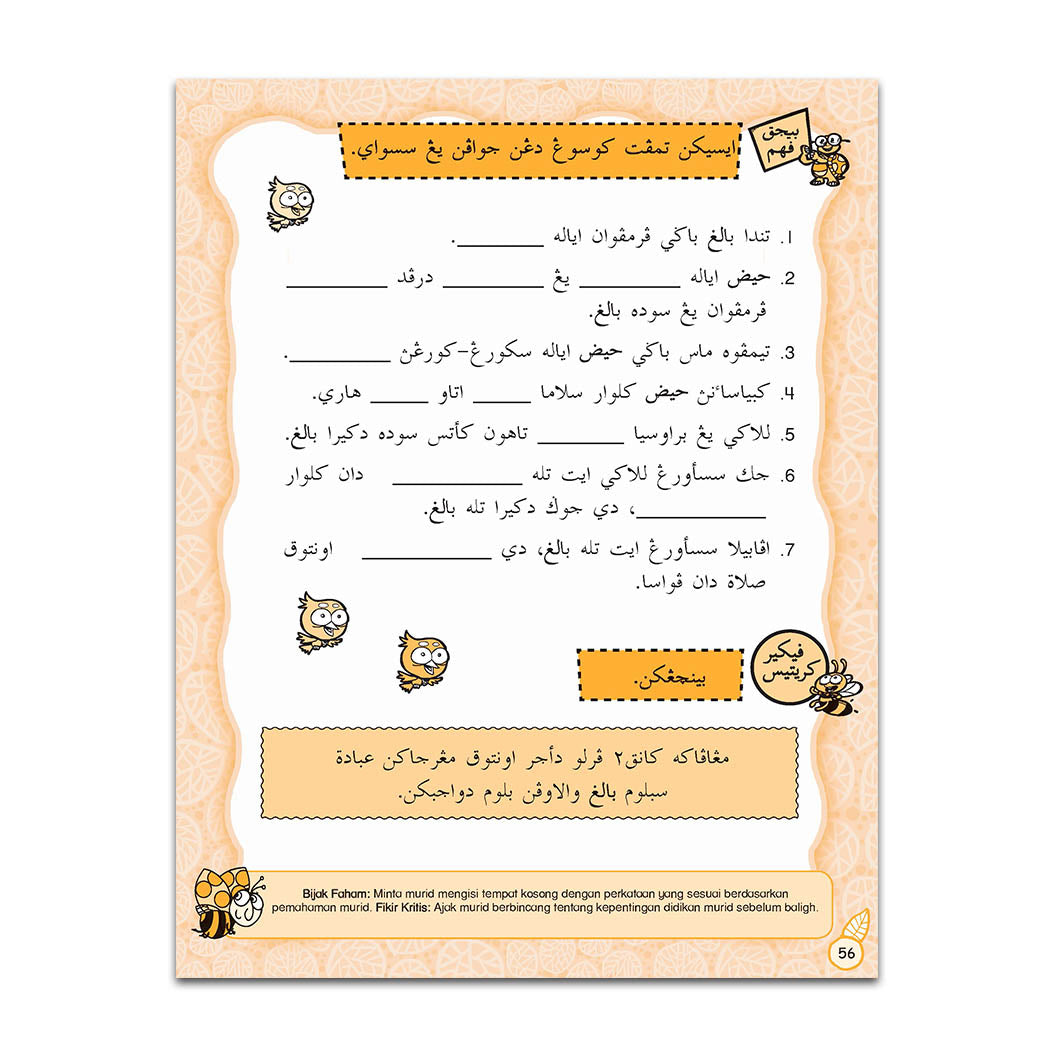 بيجق
فهم
ايسيکن تمڤت کوسوڠ دڠن جواڤن يڠ سسواي.
1. تندا بالغ باڬي ڤرمڤوان اياله ________.
2. حيض اياله ________ يڠ ________ درڤد ________
ڤرمڤوان يڠ سوده بالغ.
3. تيمڤوه ماس باڬي حيض اياله سکورڠ-کورڠڽ ________.
4. کبياساءنڽ حيض کلوار سلاما _____ اتاو _____ هاري.
5. للاکي يڠ براوسيا _______ تاهون کأتس سوده دکيرا بالغ.
6. جک سسأورڠ للاکي ايت تله __________ دان کلوار
__________، دي جوݢ دکيرا تله بالغ.
7. اڤابيلا سسأورڠ ايت تله بالغ، دي __________ اونتوق
صلاة دان ڤواسا.
فيکير
کريتيس
بينچڠکن.
مڠاڤاکه کانق٢ ڤرلو دأجر اونتوق مڠرجاکن عبادة
سبلوم بالغ والاوڤن بلوم دواجبکن.
Bijak Faham: Minta murid mengisi tempat kosong dengan perkataan yang sesuai berdasarkan
pemahaman murid. Fikir Kritis: Ajak murid berbincang tentang kepentingan didikan murid sebelum baligh.
56